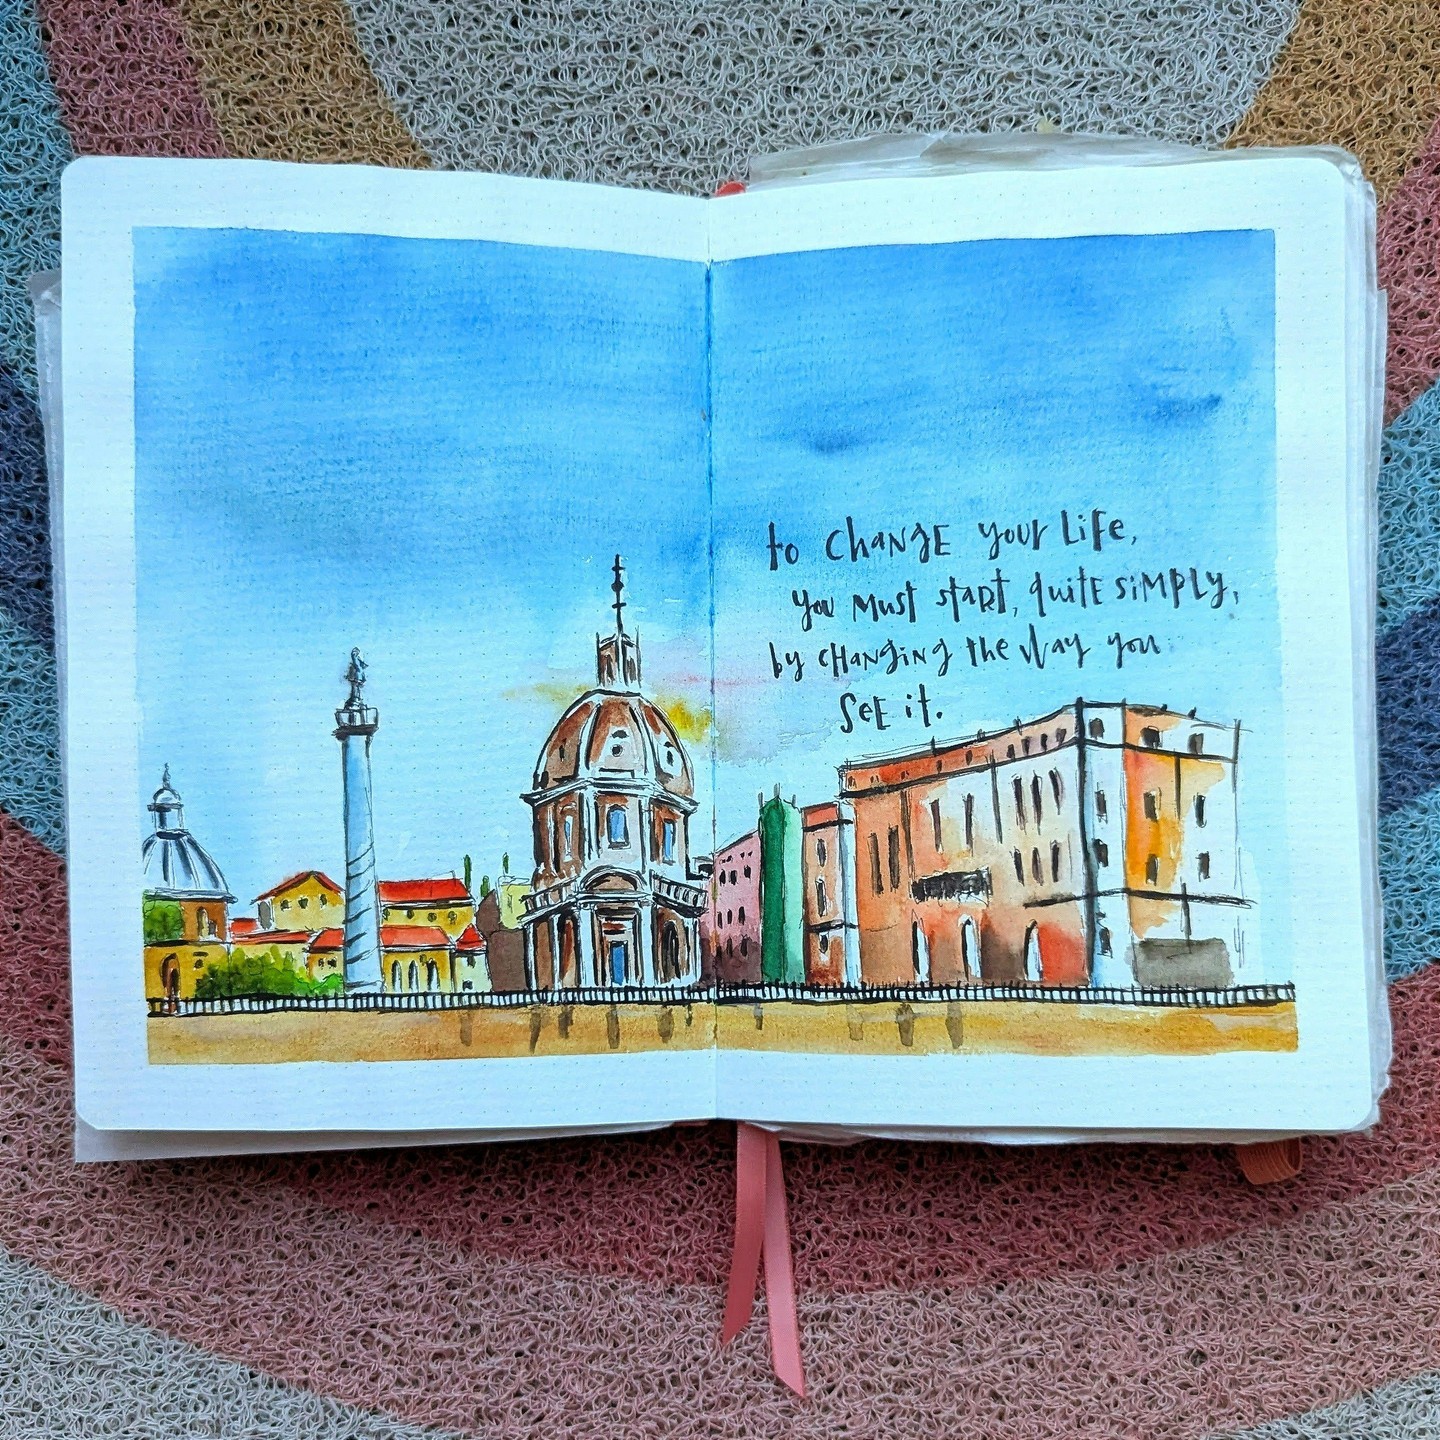 to change your life,
you must start, quite simply,
by changing the way you
see it.